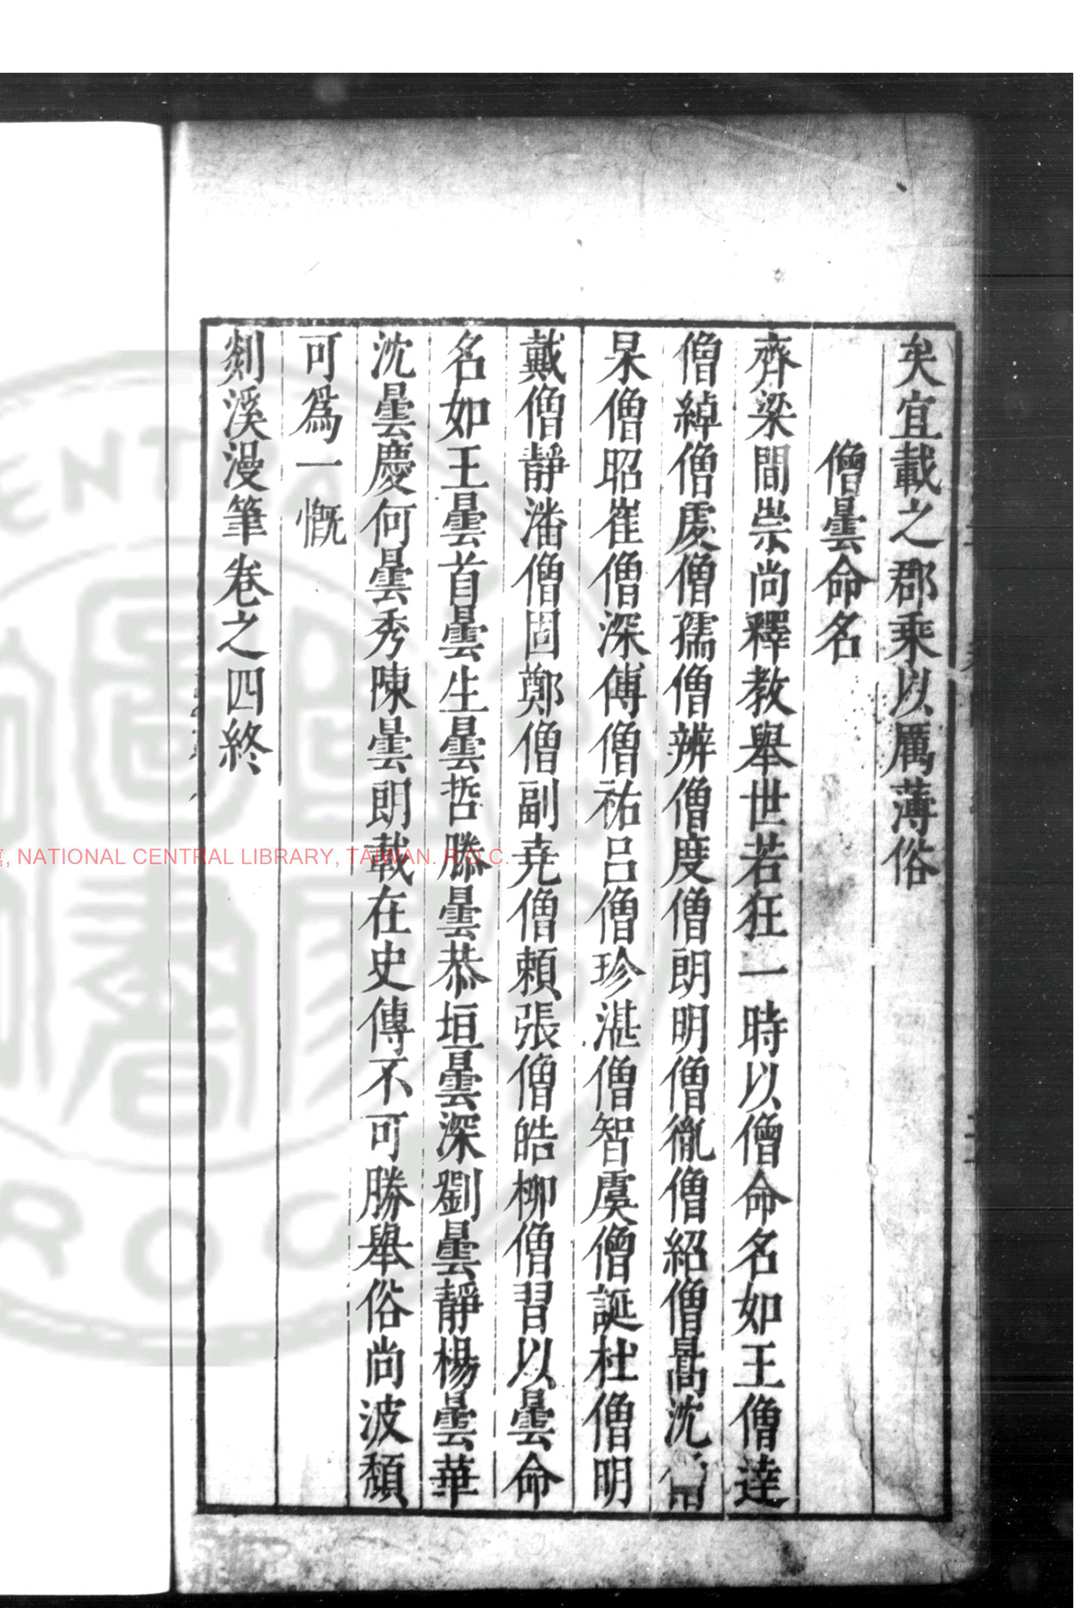 矣宜載之郡乘以厲薄俗
僧曇命名
齊梁間崇尚釋教舉世若狂一時以僧命名如王僧達
僧綽僧虔僧孺僧辨僧度僧朗明僧㣧僧紹僧暠沈
杲僧昭崔僧深傅僧祐呂僧珍湛僧智虞僧誕杜僧明
戴僧靜潘僧固鄭僧副尭僧賴張僧皓柳僧習以曇命
名如王曇首曇生曇哲滕曇恭垣曇深劉曇靜楊曇華
沈曇慶何曇秀陳曇朗載在史傳不可勝舉俗尚波頹
可爲一慨
剡溪漫筆卷之四終
NATIONAL CENTRAL LIBRARY, TAIWAN. R.O.C.